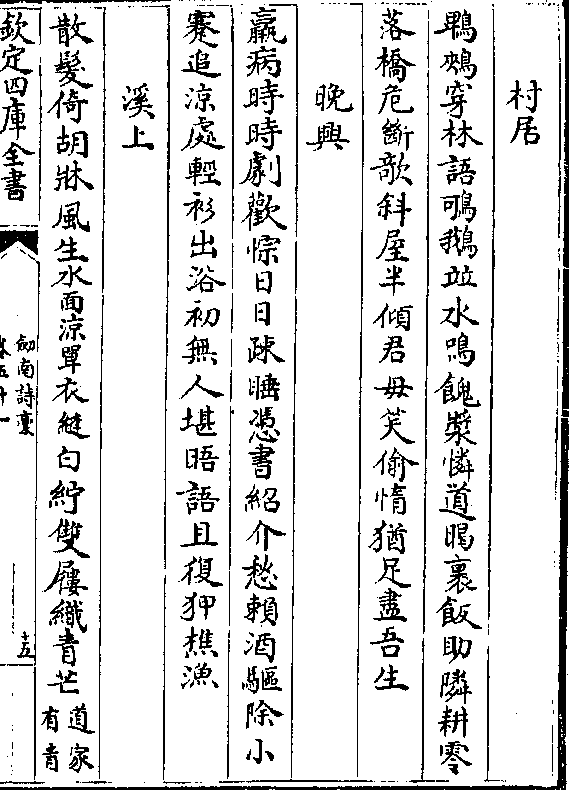 村居
鵯鵊穿林語鳴鵝並水鳴餽漿憐道暍裹飯助隣耕零
落橋危斷欹斜屋半傾君毋笑偷惰猶足盡吾生
晚興
羸病時時劇歡悰日日疎睡憑書紹介愁賴酒驅除小
蹇追涼處輕衫出浴初無人堪晤語且復狎樵漁
溪上
散髮倚胡牀風生水面涼單衣縫白紵雙屨織青芒道家
有青
欽定四庫全書
劍南詩稾
卷五十一
十五